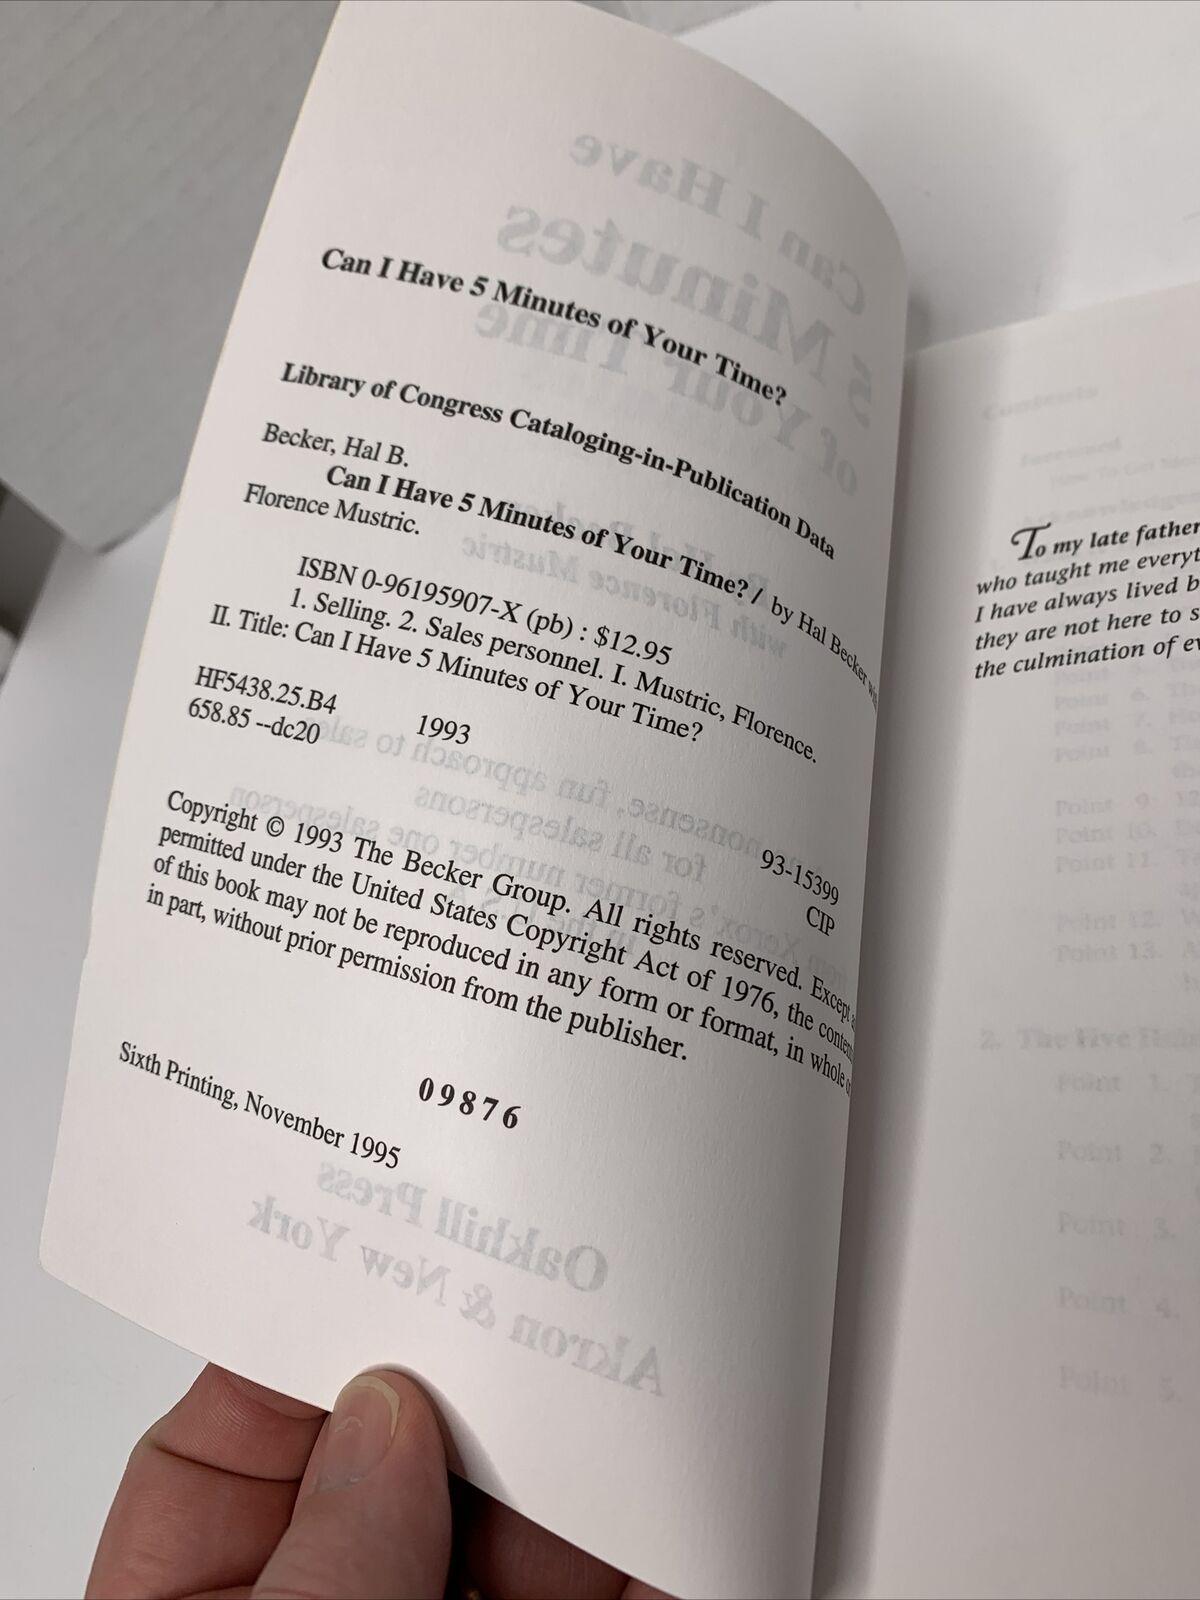 Can I Have 5 Minutes of Your Time?
Library of Congress Cataloging-in-Publication Data
Becker, Hal B.
Can I Have 5 Minutes of Your Time? / by Hal Becker
Florence Mustric.
ISBN 0-96195907-X (pb) : $12.95
1. Selling. 2. Sales personnel. I. Mustric, Florence.
II. Title: Can I Have 5 Minutes of Your Time?
HF5438.25.B4 1993
658.85 --dc20
93-15399
CIP
Copyright © 1993 The Becker Group. All rights reserved. Except
permitted under the United States Copyright Act of 1976, the
of this book may not be reproduced in any form or format, in whole
in part, without prior permission from the publisher.
0 9 8 7 6
Sixth Printing, November 1995
To my late father
who taught me
I have always lived
they are not here to
the culmination of
Contents
Foreword
Point 6.
Point 7.
Point 8.
Point 9.
Point 10.
Point 11.
Point 12.
Point 13.
2. The Five
Point 1.
Point 2.
Point 3.
Point 4.
Point 5.